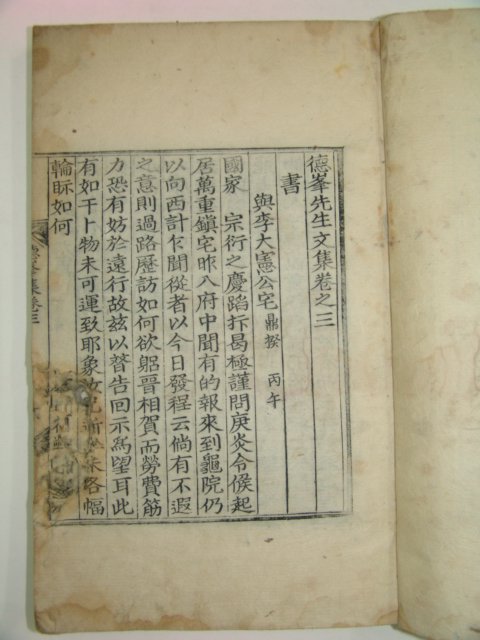 德峯先生文集卷之三
書
與李大憲公宅 鼎揆 丙午
國家 宗衍之慶蹈抃曷極謹問庚炎令候起
居萬重鎭宅昨入府中聞有的報來到龜院仍
以向西計乍聞從者以今日發程云倘有不遐
之意則過路歷訪如何欲躬晉相賀而勞費筋
力恐有妨於遠行故玆以替告回示爲望耳此
有如干卜物未可運致耶象 各幅
輪眎如何
集卷三